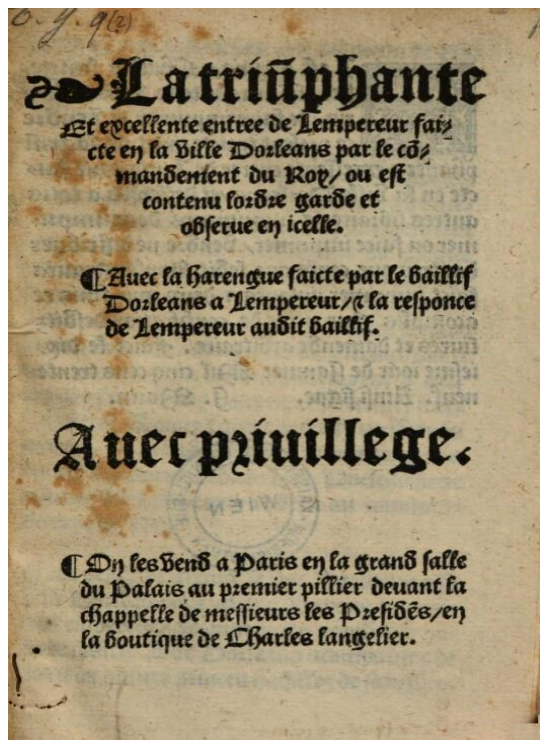 O. g. q (2)
La triũphante
Et excellente entree de Lempereur fai⸗
cte en la Ville Dorleans par le cõ⸗
mandement du Roy/ ou est
contenu lordre garde et
obserue en icelle.
¶ Auec la harengue faicte par le baillif
Dorleans a Lempereur/ ⁊ la responce
de Lempereur audit baillif.
Auec priuillege.
WIEN
¶ On les Vend a Paris en la grand salle
du Palais au premier pillier deuant la
chappelle de messieurs les Presidẽs/ en
la boutique de Charles langelier.